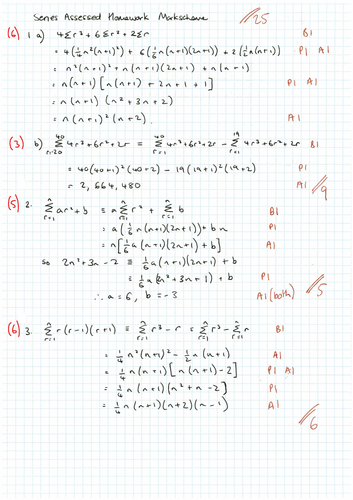 Series Assessed Homework Markscheme //25
(6) 1 a) 4Σr³ + 6Σr² + 2Σr B1
= 4(¼n²(n+1)²) + 6(⅙n(n+1)(2n+1)) + 2(½n(n+1)) P1 A1
= n²(n+1)² + n(n+1)(2n+1) + n(n+1)
= n(n+1)[n(n+1) + 2n+1 + 1] P1 A1
= n(n+1)(n²+3n+2)
= n(n+1)²(n+2). A1
(3) b) Σ_{r=20}^{40} 4r³+6r²+2r = Σ_{r=1}^{40} 4r³+6r²+2r − Σ_{r=1}^{19} 4r³+6r²+2r B1
= 40(40+1)²(40+2) − 19(19+1)²(19+2) P1
= 2,664,480 A1 //9
(5) 2. Σ_{r=1}^{n} ar²+b ≡ a Σ_{r=1}^{n} r² + Σ_{r=1}^{n} b B1
= a(⅙n(n+1)(2n+1)) + bn P1
= n[⅙a(n+1)(2n+1) + b] A1
so 2n²+3n−2 ≡ ⅙a(n+1)(2n+1) + b
≡ ⅙a(2n²+3n+1) + b P1
∴ a=6, b=−3 A1 (both) //5
(6) 3. Σ_{r=1}^{n} r(r−1)(r+1) ≡ Σ_{r=1}^{n} r³−r ≡ Σ_{r=1}^{n} r³ − Σ_{r=1}^{n} r B1
= ¼n²(n+1)² − ½n(n+1) A1
= ¼n(n+1)[n(n+1)−2] P1 A1
= ¼n(n+1)(n²+n−2] P1
= ¼n(n+1)(n+2)(n−1) A1
//6